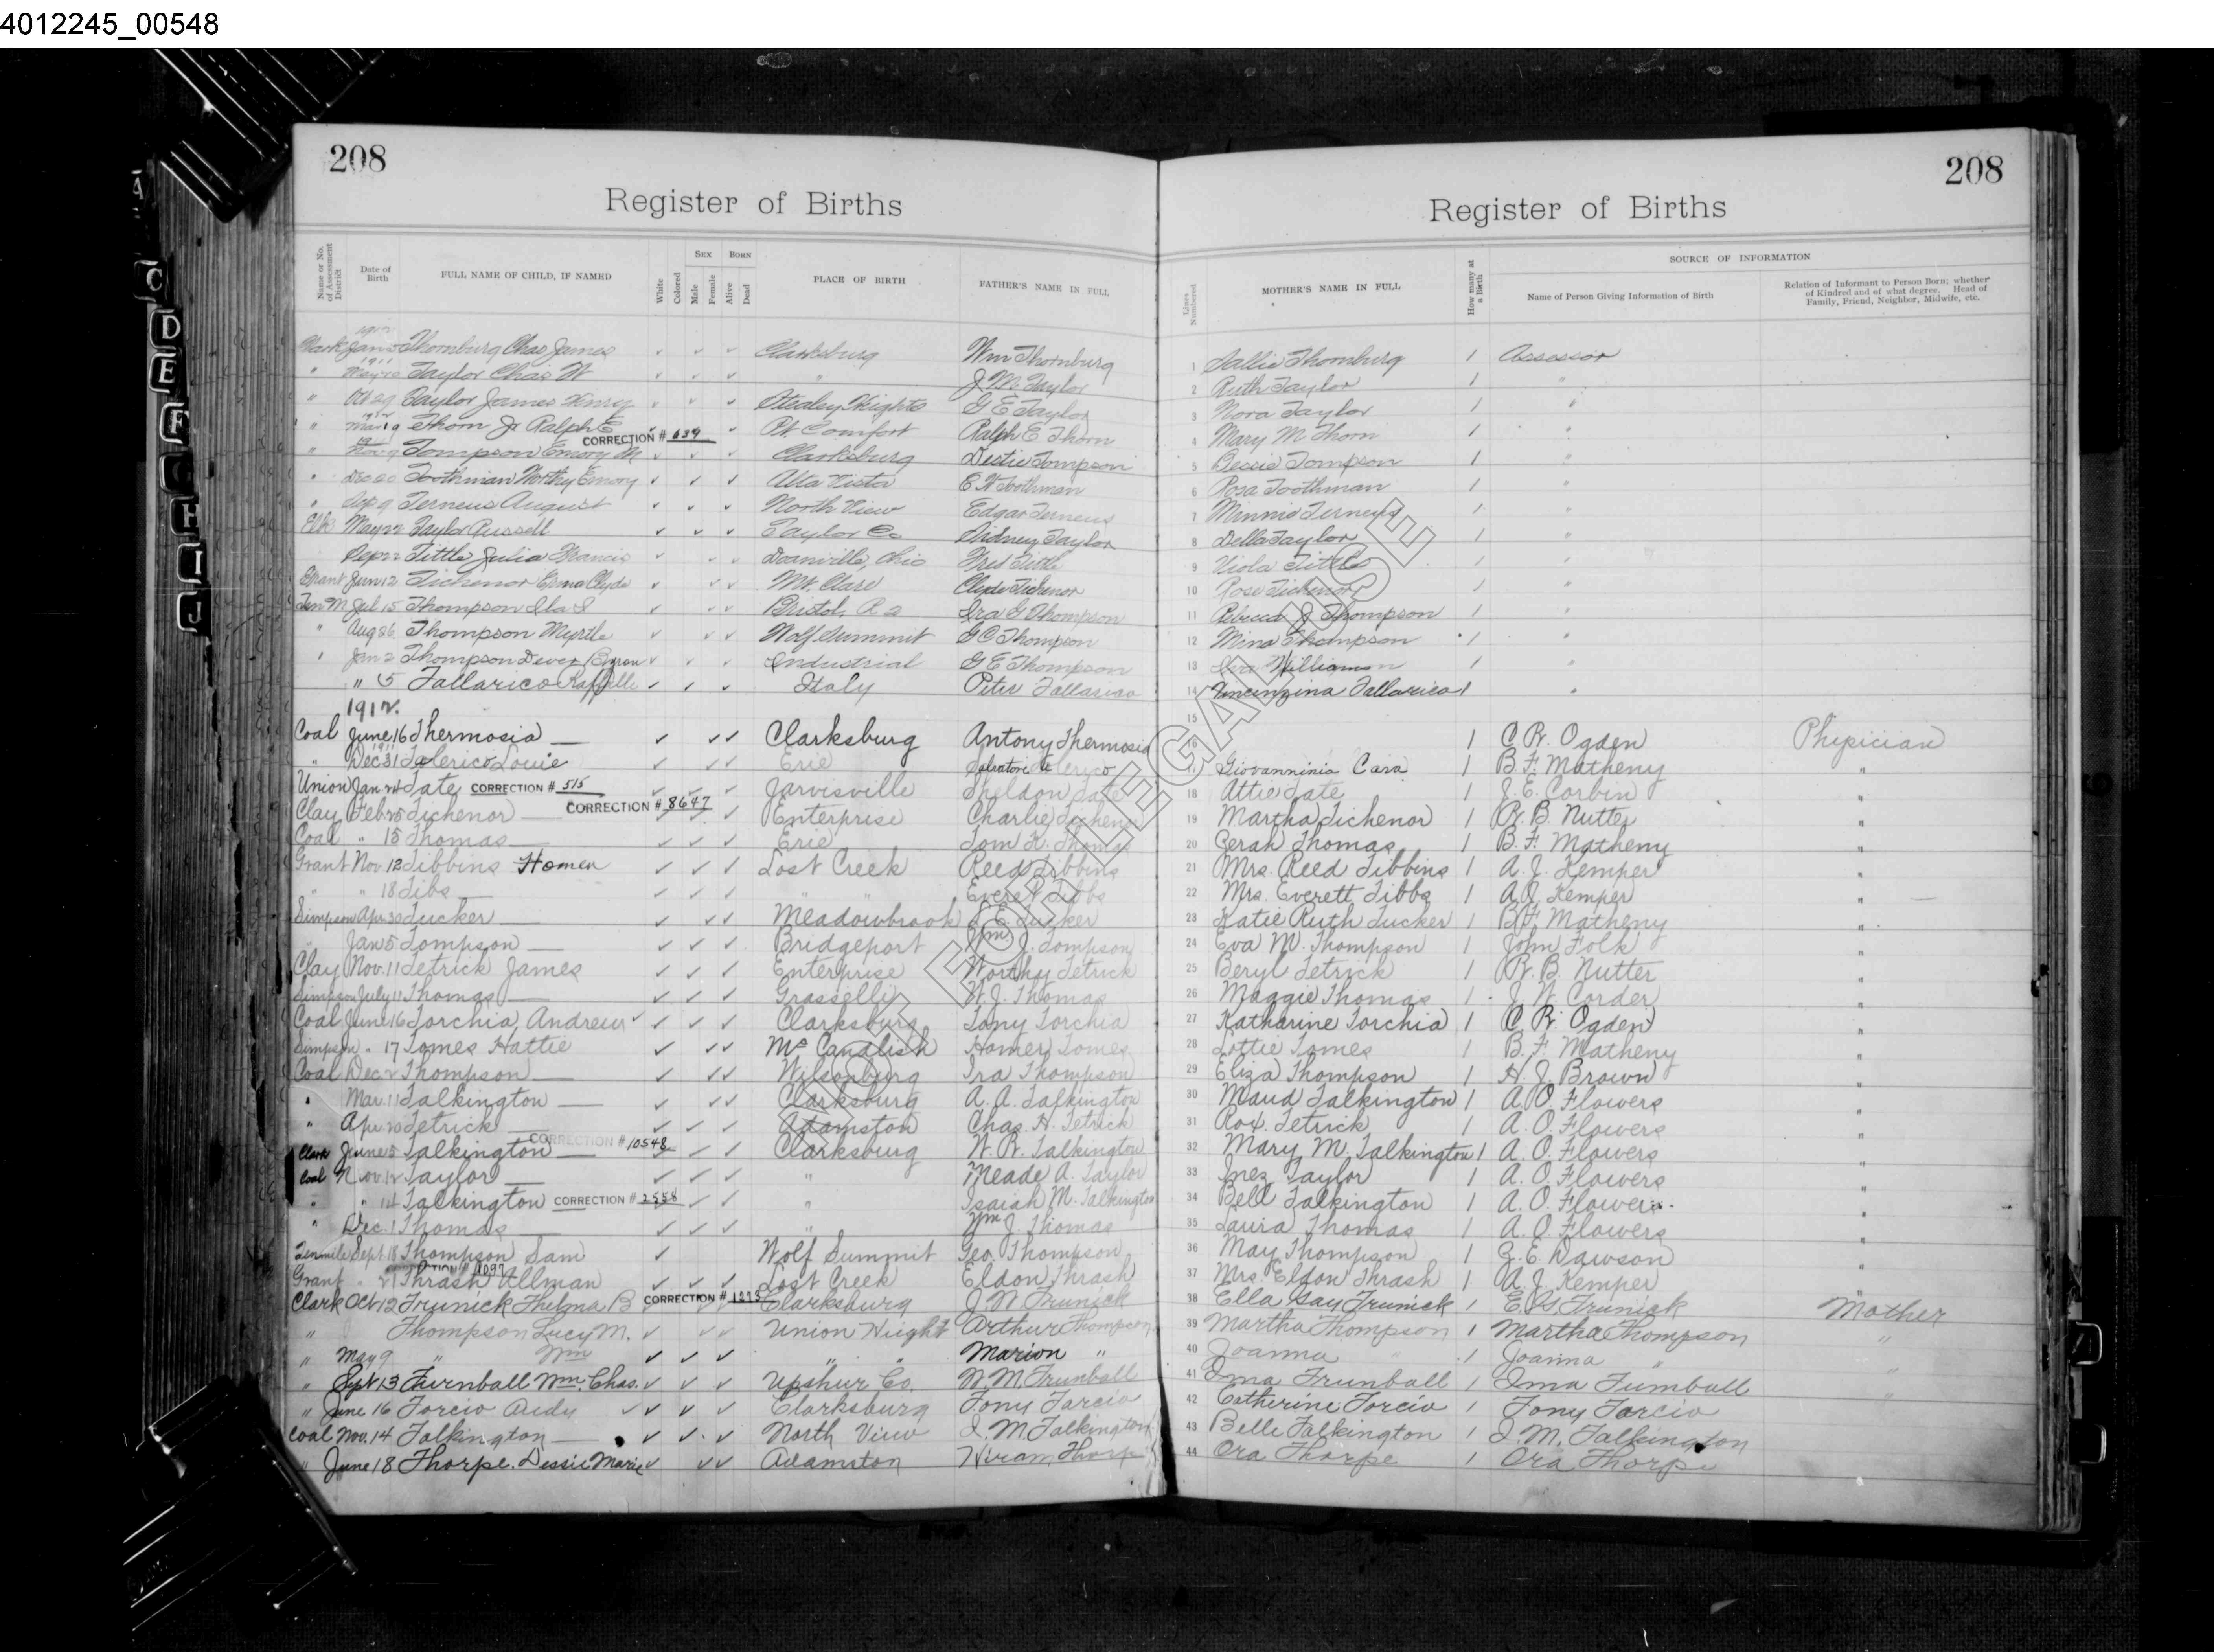 4012245_00548
208
208
Register of Births
Register of Births
Name or No. of Assessment District
Date of Birth
FULL NAME OF CHILD, IF NAMED
White
Colored
SEX
Male
Female
BORN
Alive
Dead
PLACE OF BIRTH
FATHER'S NAME IN FULL
Lines Numbered
MOTHER'S NAME IN FULL
How many at a Birth
SOURCE OF INFORMATION
Name of Person Giving Information of Birth
Relation of Informant to Person Born; whether of Kindred and of what degree. Head of Family, Friend, Neighbor, Midwife, etc.
1912
Clark Jan Thornburg Chas James Clarksburg Wm Thornburg 1 Sallie Thornburg 1 Assessor
1911
" Taylor Chas W " J M Taylor 2 Ruth Taylor 1 "
" Oct 29 Taylor James Henry Stealey Heights G E Taylor 3 Nora Taylor 1 "
" Mar 19 Thorn Jr Ralph E Pt. Comfort Ralph E Thorn 4 Mary M Thorn 1 "
CORRECTION # 639
" Nov 9 Tompson Emory M Clarksburg Tompson 5 Bessie Tompson 1 "
" Dec 20 Toothman Worthy Emory Alta Vista Toothman 6 Rosa Toothman 1 "
" Terneus August North View Edgar Terneus 7 Minnie Terneus 1 "
Elk May 22 Taylor Russell Taylor Co Sidney Taylor 8 Della Taylor 1 "
Sep 22 Tittle Julia Francis Ohio Fred Tittle 9 Viola Tittle 1 "
Grant Jun 12 Tichenor Clyde Mt. Clare Clyde Tichenor 10 Rose Tichenor 1 "
Ten M Jul 15 Thompson Bristol, R 2 Ira G Thompson 11 Thompson 1 "
" Aug 26 Thompson Myrtle Wolf Summit G C Thompson 12 Mina Thompson 1 "
" Jan 2 Thompson Dever Byron Industrial G E Thompson 13 Williams 1 "
" 5 Tallarico Raffille Italy Peter Tallarico 14 Vincinzina Tallarico 1 "
1912. 15
Coal June 16 Thermosia — Clarksburg Antony Thermosia 16 1 C. R. Ogden Phipician
1911
" Dec 31 Talerico Louie Erie Salvatore Talerico 17 Giovanninia Cara 1 B. F. Matheny "
Union Jan 24 Tate CORRECTION # 515 Jarvisville Sheldon Tate 18 Attie Tate 1 J. E. Corbin "
Clay Feb 25 Tichenor — CORRECTION # 8647 Enterprise Charlie Tichenor 19 Martha Tichenor 1 R. B. Nutter "
Coal " 15 Thomas — Erie Tom K. Thomas 20 Gerah Thomas 1 B. F. Matheny "
Grant Nov. 12 Tibbins Homer Lost Creek Reed Tibbins 21 Mrs. Reed Tibbins 1 A. J. Kemper "
" " 18 Tibs — " " Everet Tibbs 22 Mrs. Everett Tibbs 1 A. J. Kemper "
Simpson Apr 30 Tucker — Meadowbrook E. Tucker 23 Katie Ruth Tucker 1 B. F. Matheny "
" Jan 5 Tompson — Bridgeport Wm J. Tompson 24 Eva M. Thompson 1 John Folk "
Clay Nov. 11 Tetrick James Enterprise Worthy Tetrick 25 Beryl Tetrick 1 R. B. Nutter "
Simpson July 11 Thomas — Grasselli W. J. Thomas 26 Maggie Thomas 1 J. N. Corder "
Coal June 16 Torchia, Andrew Clarksburg Tony Torchia 27 Katharine Torchia 1 C. R. Ogden "
Simpson " 17 Tomes Hattie Mc Candlish Homer Tomes 28 Lottie Tomes 1 B. F. Matheny "
Coal Dec 2 Thompson — Wilsonburg Ira Thompson 29 Eliza Thompson 1 H. J. Brown "
" Mar. 11 Talkington — Clarksburg A. A. Talkington 30 Maud Talkington 1 A. O Flowers "
" Apr 20 Tetrick — Adamston Chas. H. Tetrick 31 Rox. Tetrick 1 A. O. Flowers "
CORRECTION # 10548
Clark June 5 Talkington — Clarksburg W. R. Talkington 32 Mary M. Talkington 1 A. O. Flowers "
Coal Nov. 12 Taylor — " Meade A. Taylor 33 Inez Taylor 1 A. O. Flowers "
" " 14 Talkington CORRECTION # 2558 " Isaiah M. Talkington 34 Bell Talkington 1 A. O. Flowers "
" Dec. 1 Thomas — " Wm J. Thomas 35 Laura Thomas 1 A. O. Flowers "
Tenmile Sept. 18 Thompson Sam Wolf Summit Geo. Thompson 36 May Thompson 1 Z. E. Dawson "
CORRECTION # 1097
Grant " 21 Thrash Allman Lost Creek Eldon Thrash 37 Mrs. Eldon Thrash 1 A. J. Kemper "
Clark Oct 12 Trunick Thelma B CORRECTION # 1273 Clarksburg J. W Trunick 38 Ella Gay Trunick 1 E. G. Trunick Mother
" Thompson Lucy M. Union Hieght Arthur Thompson 39 Martha Thompson 1 Martha Thompson "
" May 9 " Wm " " Marion " 40 Joanna " 1 Joanna " "
" Sept 13 Turnball Wm. Chas. Upshur Co. W. M. Trunball 41 Ima Trunball 1 Ima Tumball "
" June 16 Torcio Andy Clarksburg Tony Tarcio 42 Catherine Torcio 1 Tony Tarcio
Coal Nov. 14 Talkington — North View I. M. Talkington 43 Belle Talkington 1 I. M. Talkington
" June 18 Thorpe. Dessie Marie Adamston Hiram Thorp 44 Ora Thorpe 1 Ora Thorpe
NOT FOR LEGAL USE
C
D
E
F
G
H
I
J